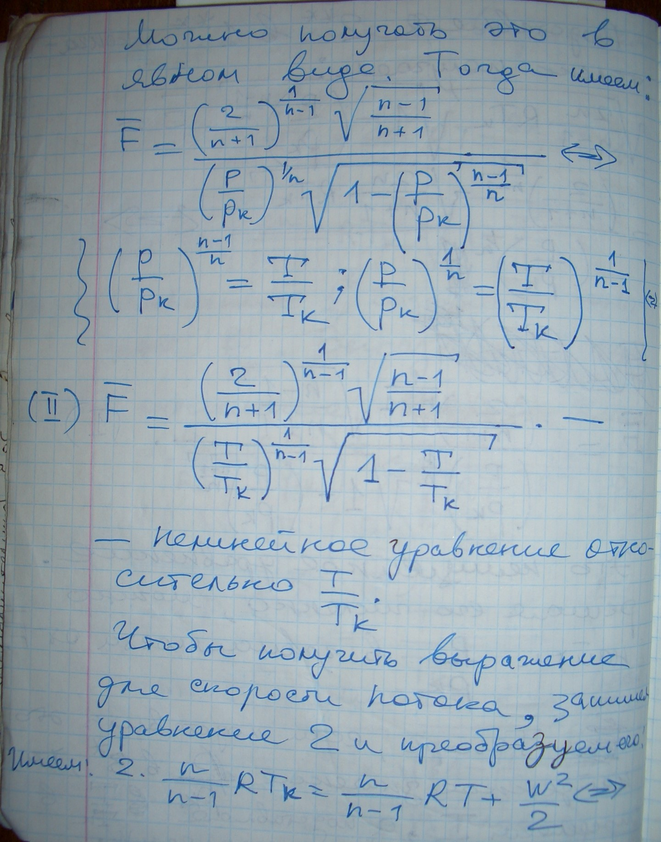 Можно получать это в
явном виде. Тогда имеем:
F̅ = (2/(n+1))^(1/(n-1)) √((n-1)/(n+1)) / ((P/Pк)^(1/n) √(1-(P/Pк)^((n-1)/n))) <=>
{(P/Pк)^((n-1)/n) = T/Tк; (P/Pк)^(1/n) = (T/Tк)^(1/(n-1))} <=>
(II) F̅ = (2/(n+1))^(1/(n-1)) √((n-1)/(n+1)) / ((T/Tк)^(1/(n-1)) √(1 - T/Tк)) . —
— нелинейное уравнение отно-
сительно T/Tк.
Чтобы получить выражение
для скорости потока, запишем
уравнение 2 и преобразуем его.
Имеем: 2. n/(n-1) RTк = n/(n-1) RT + W²/2 <=>